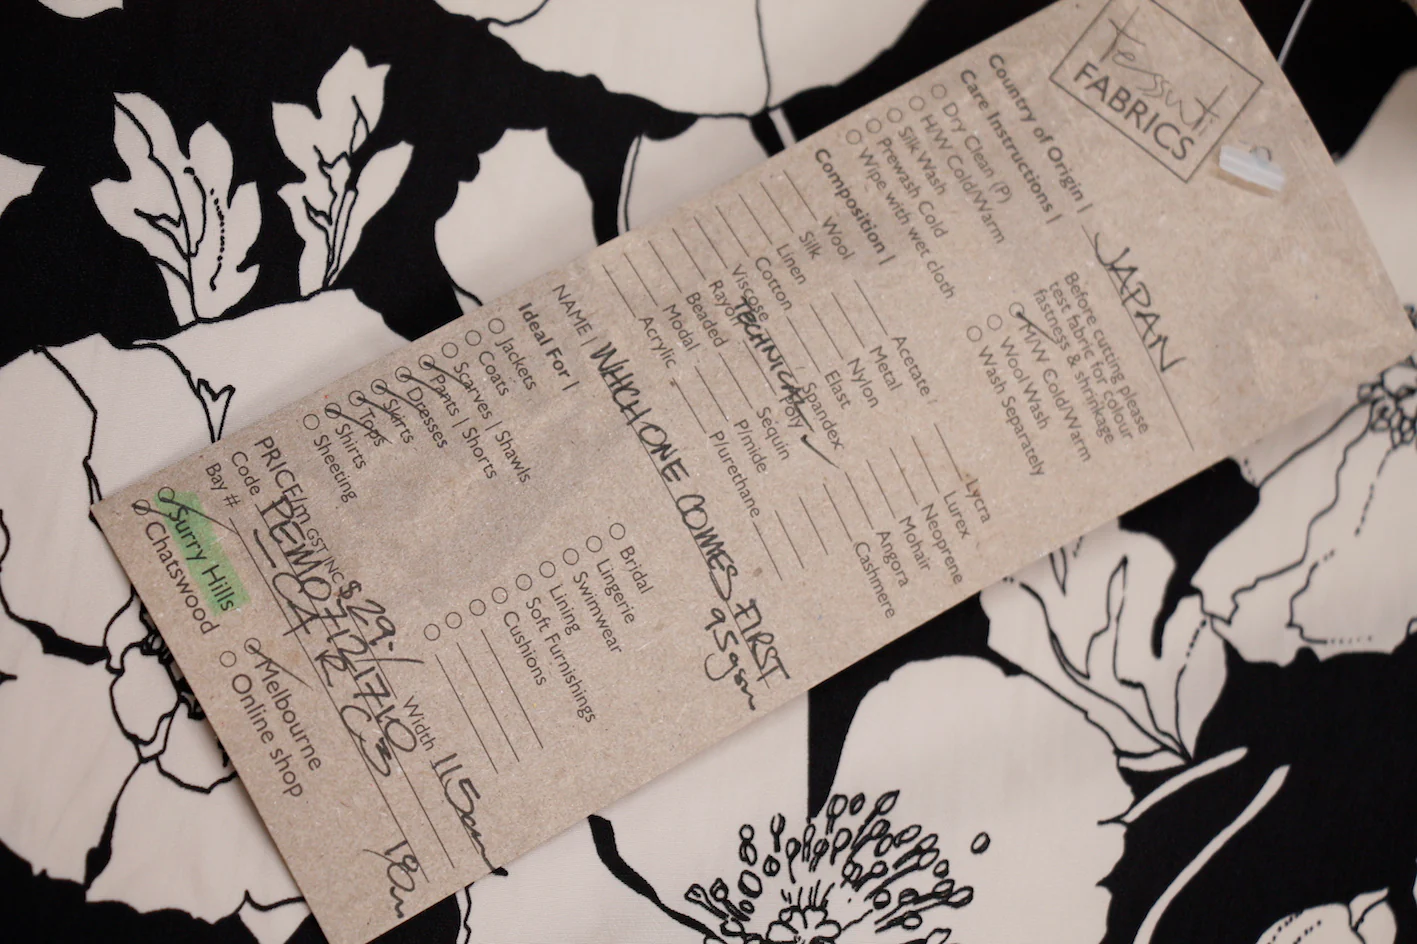 tessuti
FABRICS
Country of Origin | JAPAN
Care Instructions |
Dry Clean (P)
H/W Cold/Warm
Silk Wash
Prewash Cold
Wipe with wet cloth
Before cutting please
test fabric for colour
fastness & shrinkage
M/W Cold/Warm
Wool Wash
Wash Separately
Composition |
Wool
Silk
Linen
Cotton
Viscose
Rayon
Beaded
Modal
Acrylic
Acetate
Metal
Nylon
Elast
Spandex
TECHNICAL Poly
Sequin
P/mide
P/urethane
Lycra
Lurex
Neoprene
Mohair
Angora
Cashmere
NAME | WHICH ONE COMES FIRST
95gsm
Ideal For |
Jackets
Coats
Scarves | Shawls
Pants | Shorts
Dresses
Skirts
Tops
Shirts
Sheeting
Bridal
Lingerie
Swimwear
Lining
Soft Furnishings
Cushions
PRICE/m GST INC $29.- Width 115cm
Code
Bay #
Surry Hills
Chatswood
Melbourne
Online shop